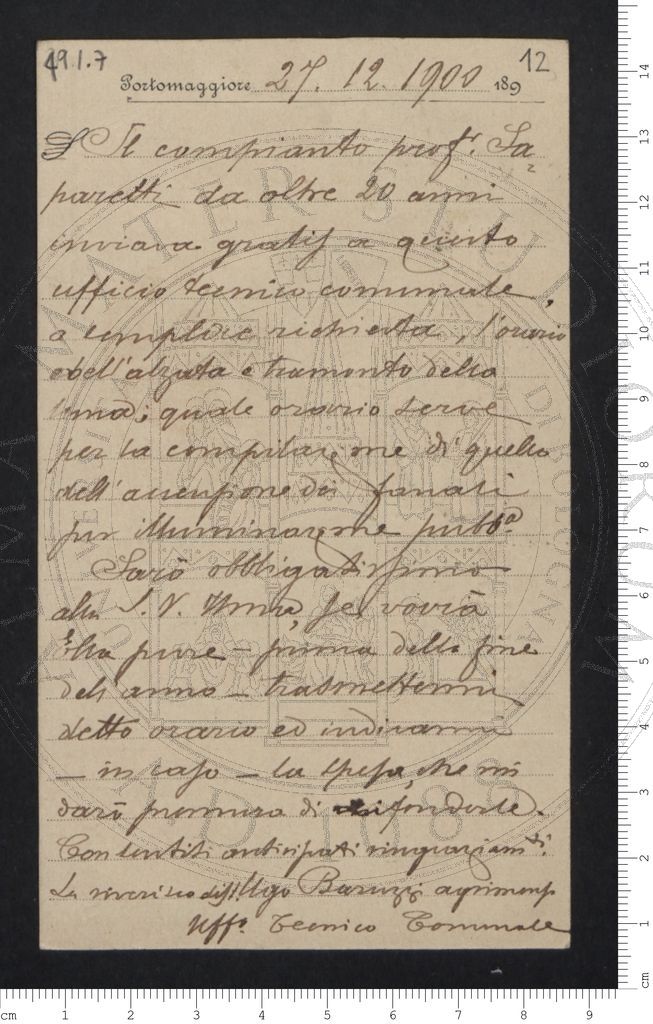 49.1.7
12
Portomaggiore 27. 12. 1900 189
Il compianto prof.r Sa=
paretti da oltre 20 anni
inviava gratis a questo
ufficio tecnico comunale,
a semplice richiesta, l'orario
dell'alzata e tramonto della
luna; quale orario serve
per la compilazione di quello
dell'accensione dei fanali
per illuminazione pubb.a
Sarò obbligatissimo
alla S. V. Ill.ma, se vorrà
Ella pure - prima della fine
dell'anno - trasmettermi
detto orario ed indicarmi
- in caso - la spesa, che mi
darò premura di rifonderle.
Con sentiti anticipati ringraziam.ti
La riverisco Ugo Baruzzi agrimens.
Uff.o Tecnico Comunale
ALMA MATER STUDIORUM
UNIVERSITÀ DI BOLOGNA
A.D. 1088
cm 1 2 3 4 5 6 7 8 9
cm 1 2 3 4 5 6 7 8 9 10 11 12 13 14